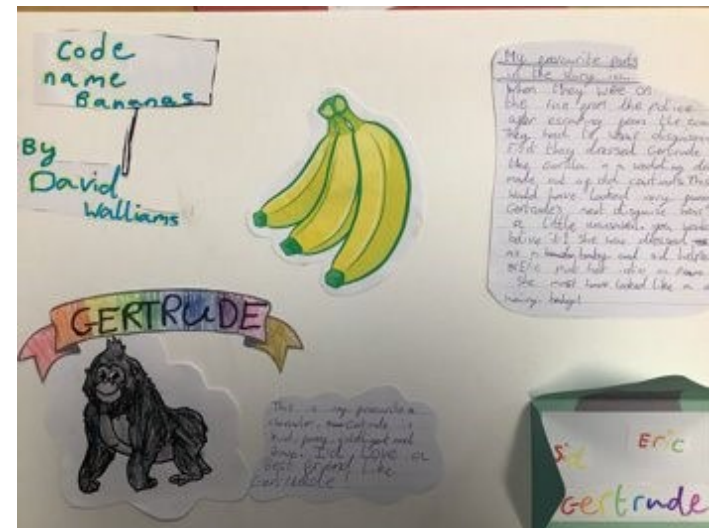 Code
name
Bananas
By
David
Walliams
My favourite parts
in the story is...
When they wee on
the run from the police
after escaping from the
They had to wear disguises
First they dressed Gertrude
like a wedding
made out of old curtains This
would have looked very funny
Gertrude's next disguise was
a little unusual, you
belive it! She was dressed
as a baby and sid helped
eric put her in a
She must have looked like a
hairy baby!
GERTRUDE
This is my favourite
character. Gertrude is
kind, funny, intelligent and
brave. I'd love a
best friend like
Gertrude
Sid
Eric
Gertrude